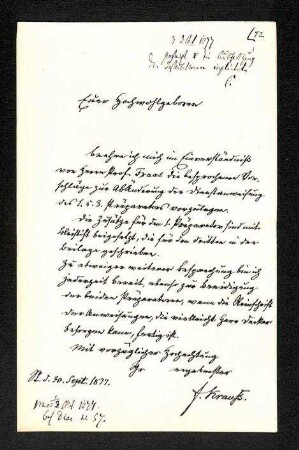 [72
3 Okt 1877
Euer Hochwohlgeboren
beehre ich mich im Einverständniß
von Herrn Prof. Fraas die besprochenen Vor-
schläge zur Abänderung der Dienstanweisung
des 1. u. 3. Präparators vorzulegen.
Die Zusätze für den 1. Präparator sind mit
Bleistift beigesetzt, die für den dritten in der
Beilage geschrieben.
Zu etwaiger weiterer Besprechung bin ich
jederzeit bereit, ebenso zur Beeidigung
der beiden Präparatoren, wenn die Reinschrift
der Anweisungen, die vielleicht Herr
besorgen kann, fertig ist.
Mit vorzüglicher Hochachtung
Ihr ergebenster
St. d. 30. Sept. 1877.
F. Krauß.
3 Okt. 1877.
57.